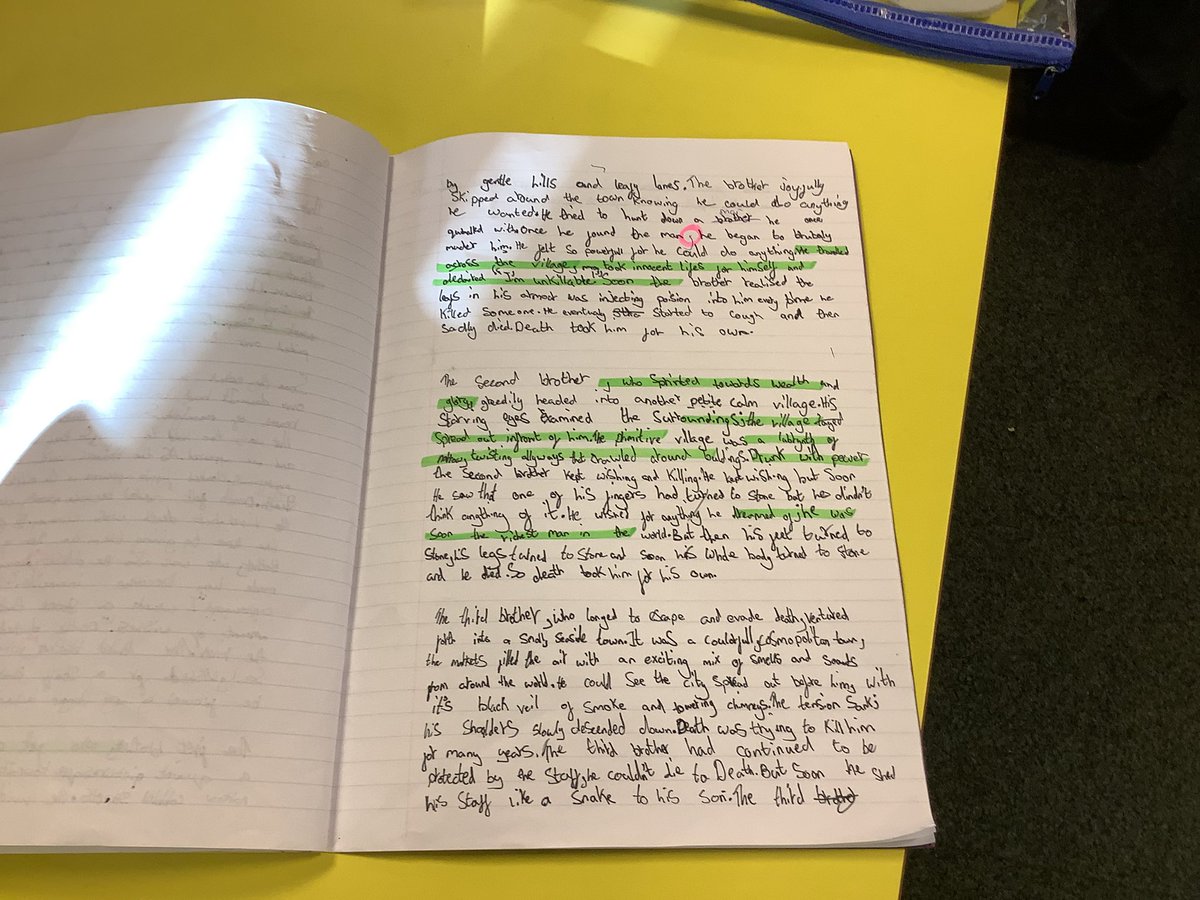 by gentle hills and leafy lanes. The brother joyfully
skipped around the town knowing he could do anything
he wanted. He tried to hunt down a brother man he once
with. Once he found the man, he began to
murder him. He felt so powerfull for he could do anything. He
across the village, took innocent lifes for himself and
"I'm unkillable". Soon the brother realised the
in his armour was injecting poision into him every time he
killed someone. He eventualy started to cough and then
sadly died. Death took him for his own.
The second brother, who sprinted towards wealth and
glory, greedily headed into another petite calm village. His
starving eyes examined the surroundings; the village
spread out infront of him. The primitive village was a of
twisting allyways that crawled around buildings. Drunk with power
the second brother kept wishing and killing. He kept wishing but soon
He saw that one of his fingers had turned to stone but he
think anything of it. He wished for anything he dreamed of; he was
soon the richest man in the world. But then his feet turned to
stone, his legs turned to stone and soon his whole body turned to stone
and he died. So death took him for his own.
The third brother, who longed to escape and evade death, ventured
forth into a seaside town. It was a cosmopolitan town,
the markets filled the air with an exciting mix of smells and sounds
from around the world. He could see the city spread out before him, with
it's black veil of smoke and towering chimneys. The tension
his shoulders slowly descended down. Death was trying to kill him
for many years. The third brother had continued to be
protected by the staff, he couldn't die to Death. But soon he shed
his staff like a snake to his son. The third brother